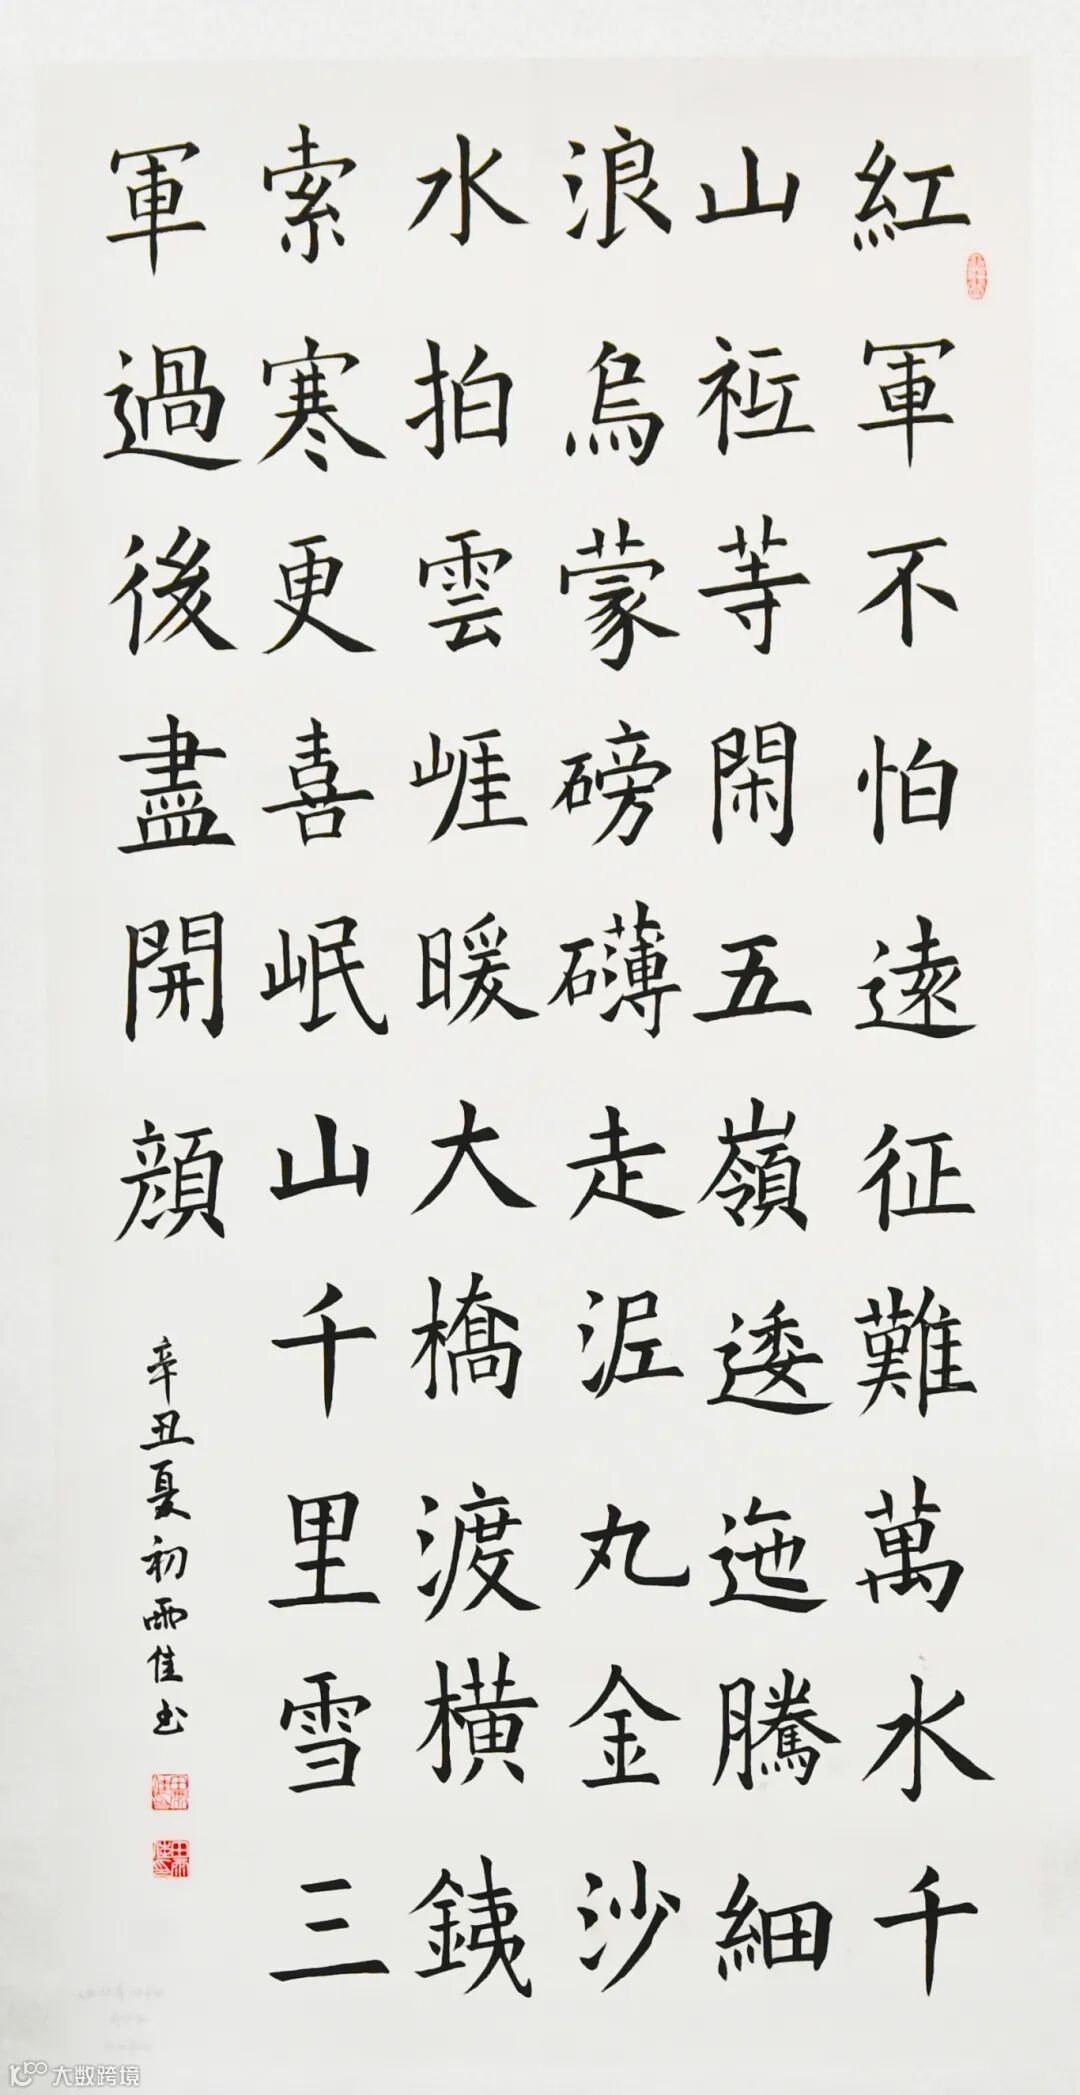 紅軍不怕遠征難萬水千
山祗等閑五嶺逶迤騰細
浪烏蒙磅礴走泥丸金沙
水拍雲崖暖大橋渡横銕
索寒更喜岷山千里雪三
軍過後盡開顔
辛丑夏初雨佳书
大数跨境